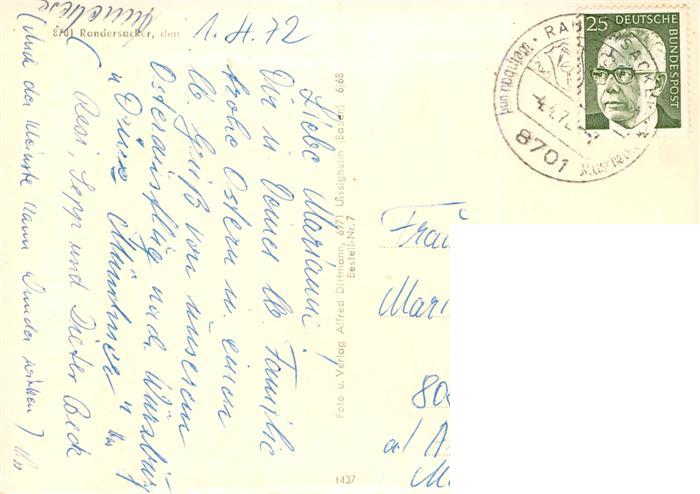 8701 Randersacker, den 1.4.72
Liebe Mariann!
Dir u. Deiner lb. Familie
frohe Ostern u. einen
lb. Gruß von unserem
Osterausflug nach Würzburg
"Deine Münchner"
Resi, Sepp und Dieter Beck
(Auch der kleinste kann Wunder wirken)
Foto u. Verlag Alfred Dittmann, 6971 Uissigheim (Baden) 6/68
Bestell-Nr. 7
1437
25 DEUTSCHE
BUNDESPOST
RANDERSACKER
8701
Frau
Mari
80
a/ A
M